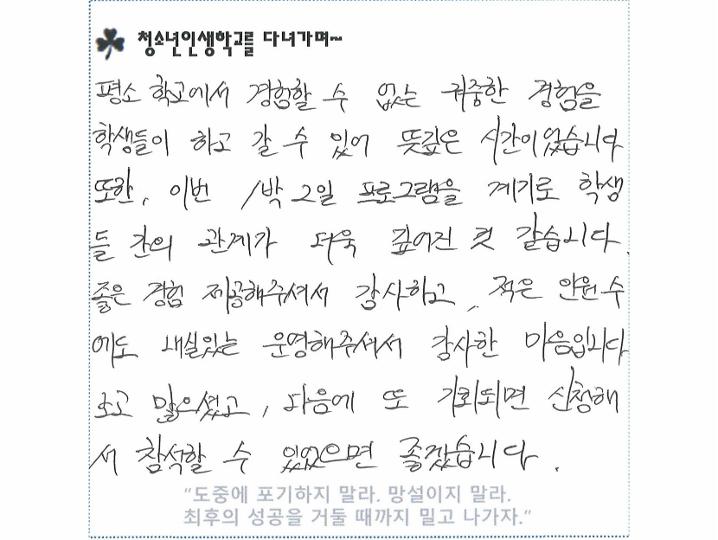 청소년인생학교를 다녀가며~
평소 학교에서 경험할 수 없는 귀중한 경험을
학생들이 하고 갈 수 있어 뜻깊은 시간이었습니다
또한, 이번 1박 2일 프로그램을 계기로 학생
들 간의 관계가 더욱 깊어진 것 같습니다.
좋은 경험 제공해주셔서 감사하고, 적은 인원수
에도 내실있는 운영해주셔서 감사한 마음입니다
수고 많으셨고, 다음에 또 기회되면 신청해
서 참석할 수 있었으면 좋겠습니다.
"도중에 포기하지 말라. 망설이지 말라.
최후의 성공을 거둘 때까지 밀고 나가자."